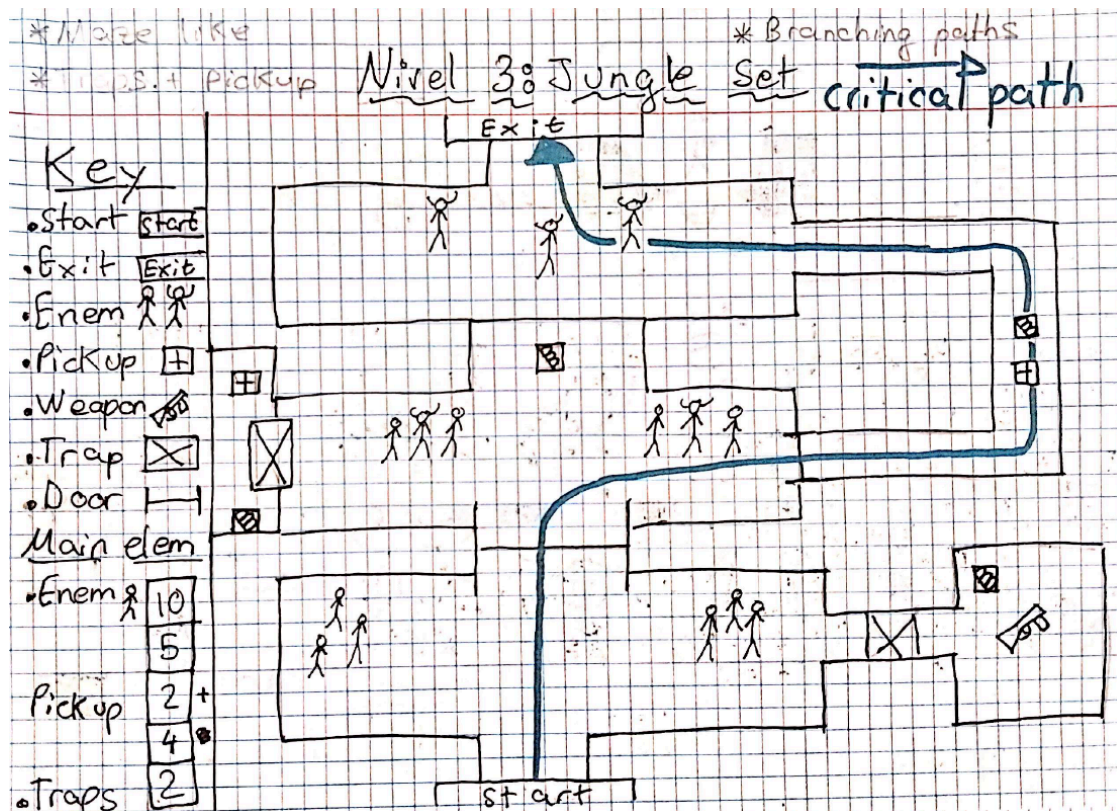 * Maze like
* Branching paths
* Traps + Pickup
Nivel 3: Jungle Set
critical path
Exit
Key
• Start Start
• Exit Exit
• Enem
• Pickup
• Weapon
• Trap
• Door
Main elem
• Enem 10
5
Pickup 2 +
4
• Traps 2
start